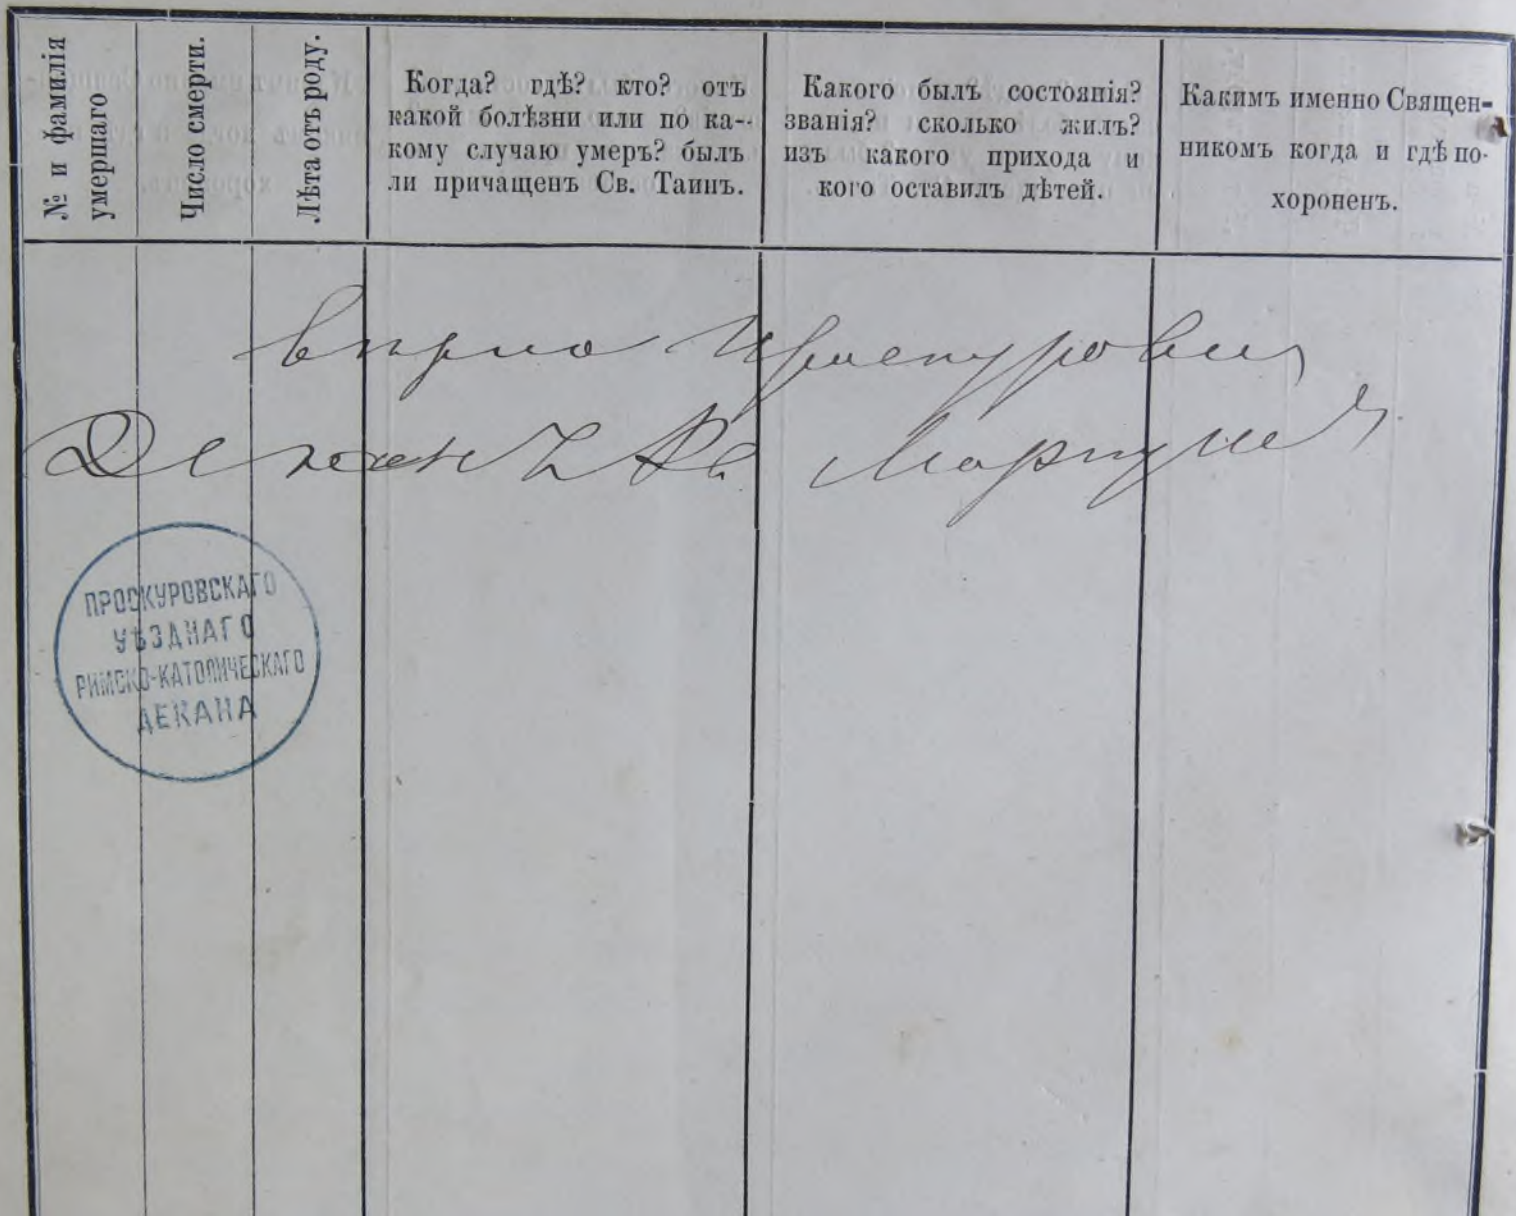 № и фамилія
умершаго
Число смерти.
Лѣта отъ роду.
Когда? гдѣ? кто? отъ
какой болѣзни или по ка-
кому случаю умеръ? былъ
ли причащенъ Св. Таинъ.
Какого былъ состоянія?
званія? сколько жилъ?
изъ какого прихода и
кого оставилъ дѣтей.
Какимъ именно Священ-
никомъ когда и гдѣ по-
хороненъ.
вѣрно Проскуровскій
Деканъ Кс.
ПРОСКУРОВСКАГО
УѢЗДНАГО
РИМСКО-КАТОЛИЧЕСКАГО
ДЕКАНА